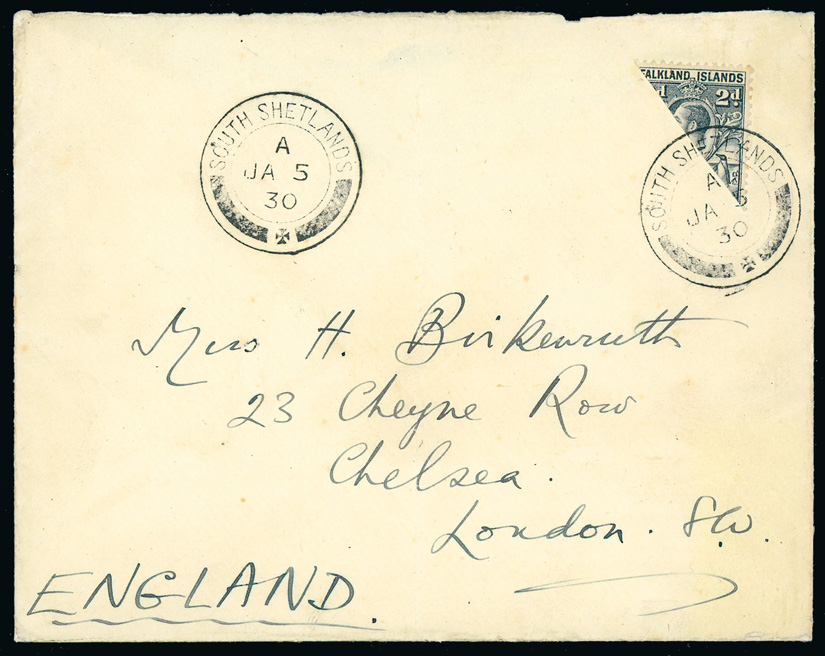 SOUTH SHETLANDS
A
JA 5
30
FALKLAND ISLANDS
d 2d
SOUTH SHETLANDS
A
JA 5
30
Miss H. Birkenruth
23 Cheyne Row
Chelsea.
London. S.W.
ENGLAND.